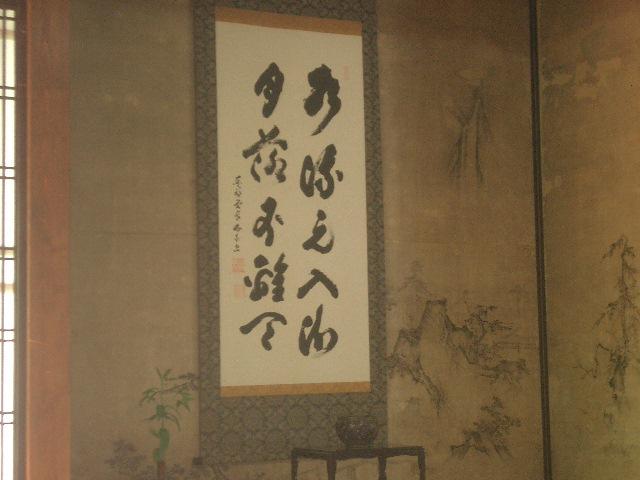 水流元入海
月落不離天